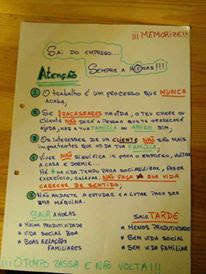 !!! MEMORIZE!!!
SAI DO EMPREGO...
SEMPRE A HORAS!!!
ATENÇÃO
1 O TRABALHO É UM PROCESSO QUE NUNCA
ACABA,
2 SE FRACASSARES NA VIDA, O TEU CHEFE OU
CLIENTE NÃO SERÁ A PESSOA QUE TE OFERECERÁ
AJUDA, MAS A TUA FAMÍLIA OU AMIGO SIM,
3 OS INTERESSES DE UM CLIENTE NÃO SÃO MAIS
IMPORTANTES QUE OS DA TUA FAMÍLIA,
4 VIVER NÃO SIGNIFICA IR PARA O EMPREGO, VOLTAR
A CASA E DORMIR...
HÁ + NA VIDA. TEMPO PARA SOCIALIZAR, FAZER
EXERCÍCIO, RELAXAR. NÃO FAÇAS A TUA VIDA
CARECER DE SENTIDO,
5 NÃO ANDASTE A ESTUDAR E A LUTAR PARA SER
UMA MÁQUINA.
SAIR A HORAS
MAIOR PRODUTIVIDADE
VIDA SOCIAL BOA
BOAS RELAÇÕES
FAMILIARES
SAIR TARDE
MENOS PRODUTIVIDADE
SEM VIDA SOCIAL
SEM VIDA FAMILIAR
!!! O TEMPO PASSA E NÃO VOLTA!!!